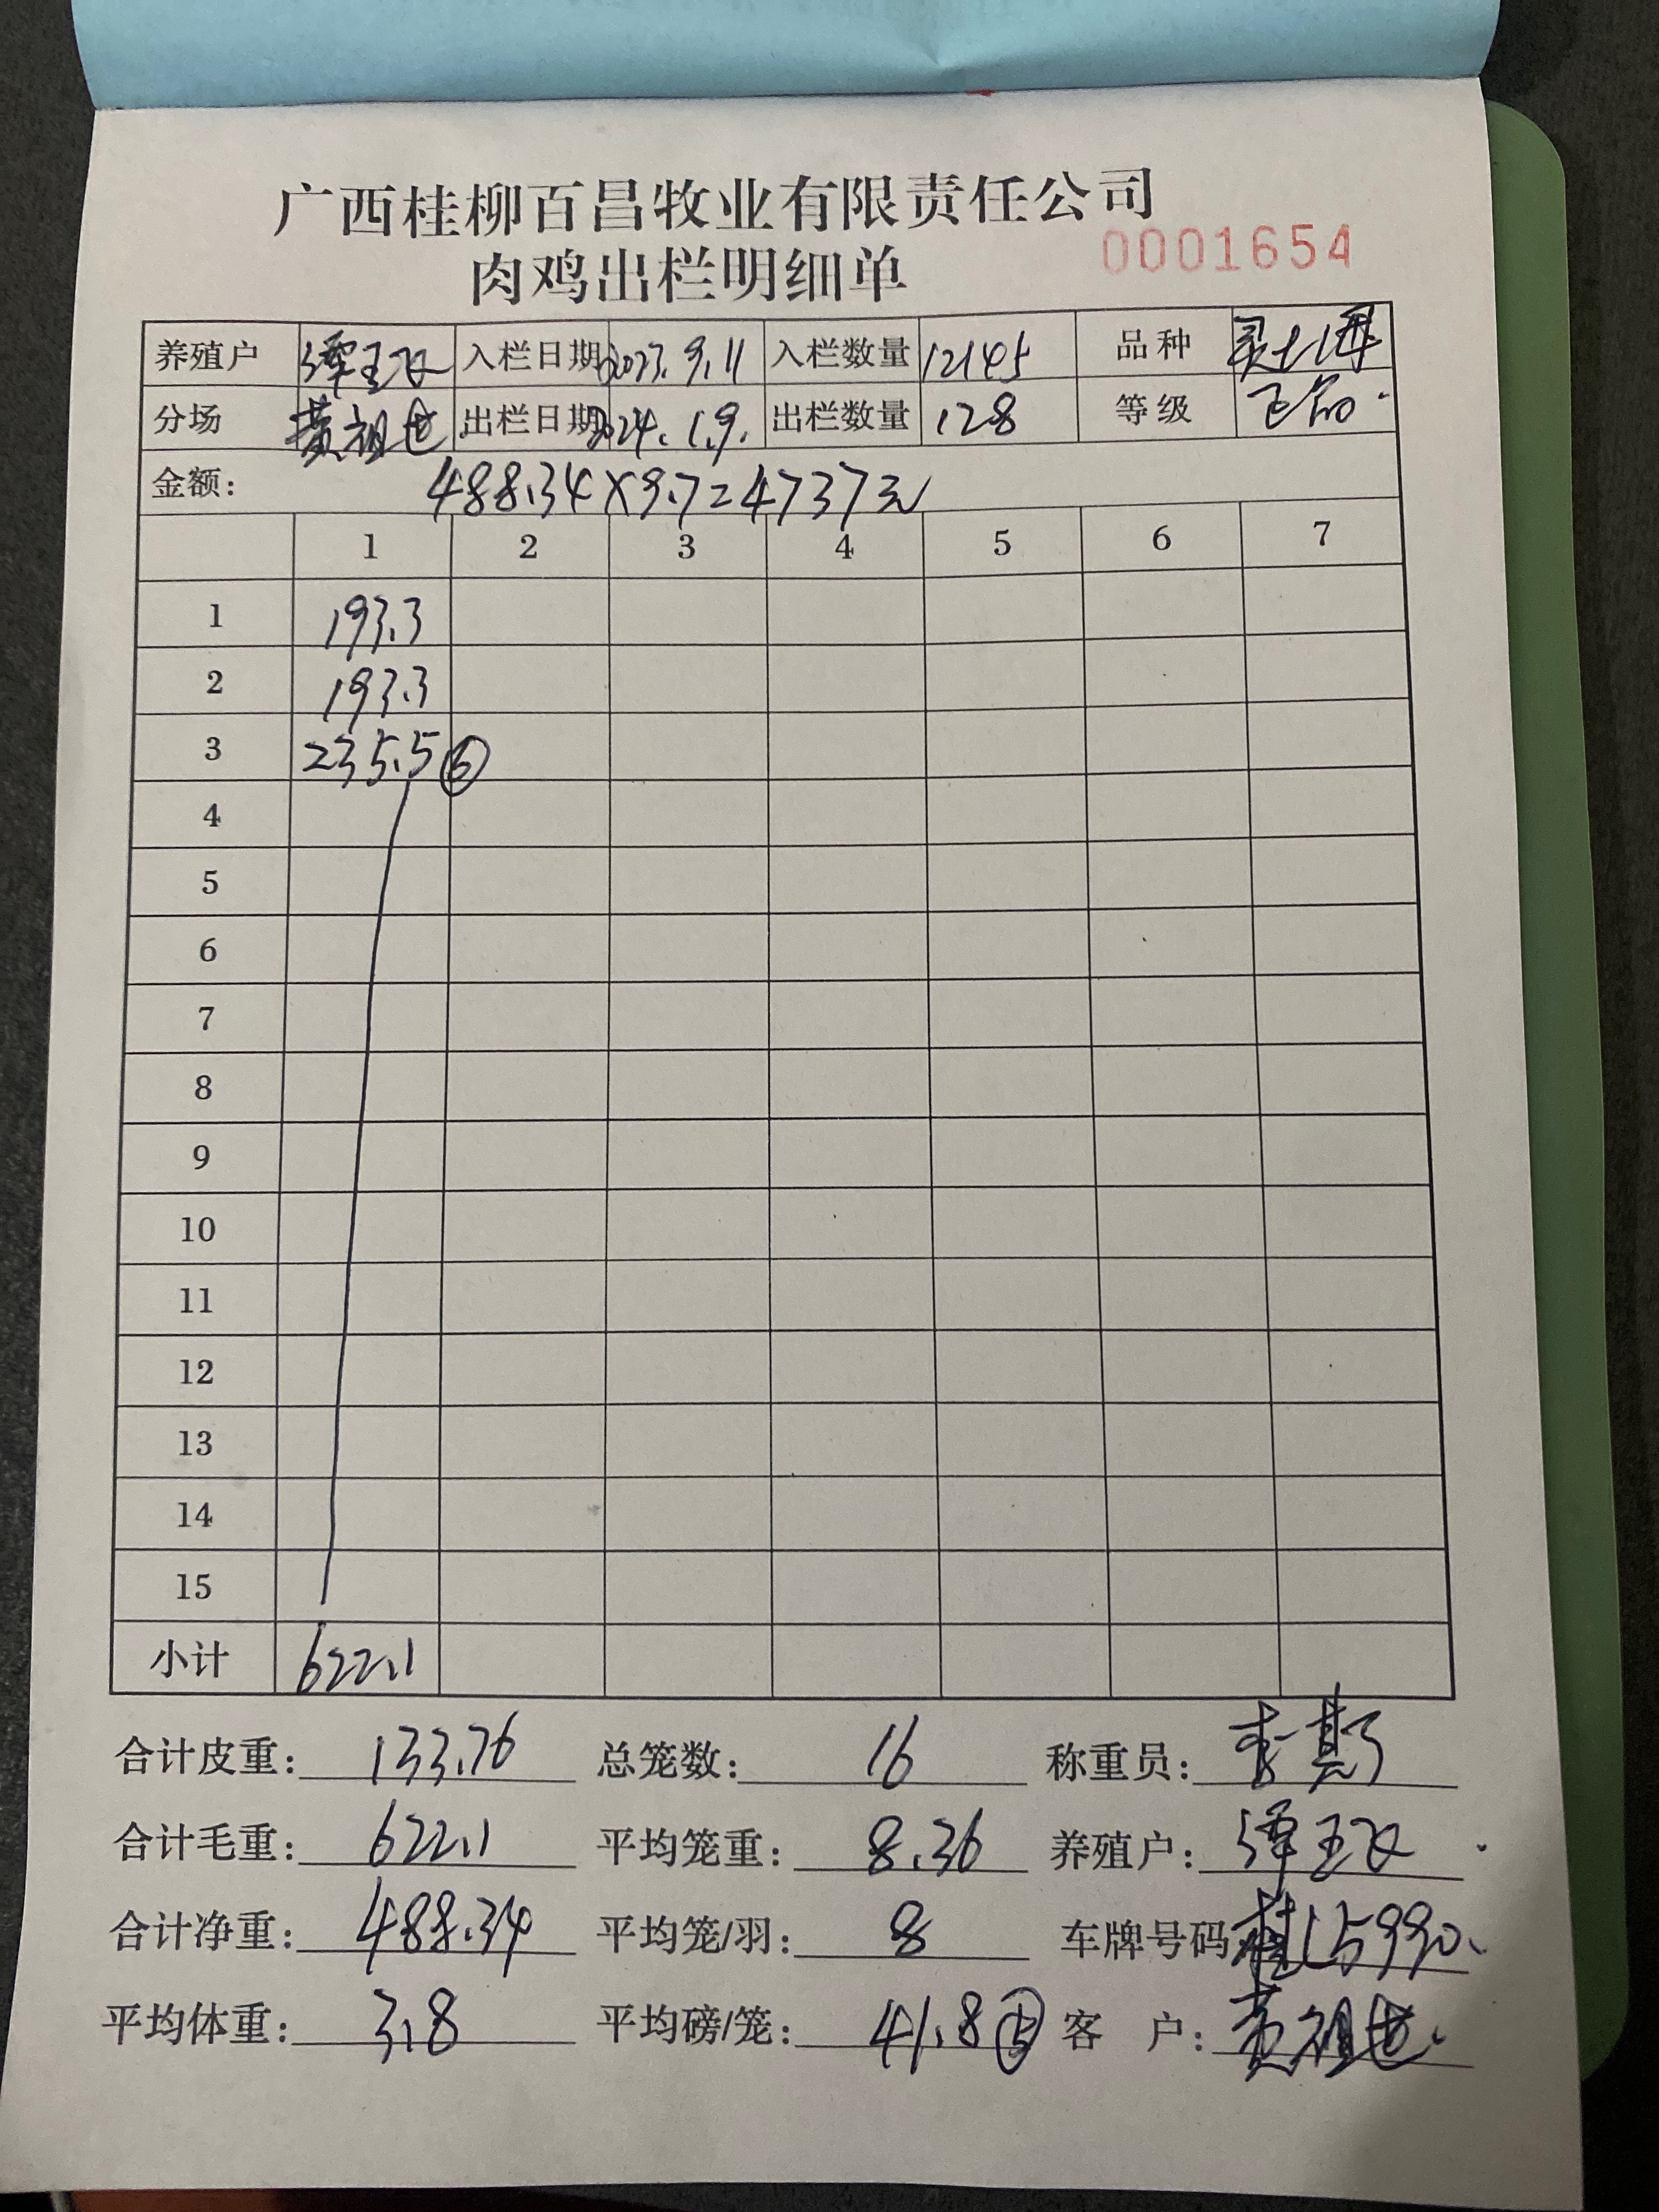 广西桂柳百昌牧业有限责任公司
肉鸡出栏明细单
0001654
养殖户 谭玉飞 入栏日期 2023.9.11 入栏数量 12145 品种
分场 黄祖世 出栏日期 2024.1.9. 出栏数量 128 等级
金额: 488.34×9.7=4737元
1 2 3 4 5 6 7
1 193.3
2 193.3
3 235.5 ⑥
4
5
6
7
8
9
10
11
12
13
14
15
小计 622.1
合计皮重: 133.76 总笼数: 16 称重员: 李斯
合计毛重: 622.1 平均笼重: 8.36 养殖户: 谭玉飞
合计净重: 488.34 平均笼/羽: 8 车牌号码 桂L5990
平均体重: 3.8 平均磅/笼: 41.8 ⑤ 客 户: 黄祖世